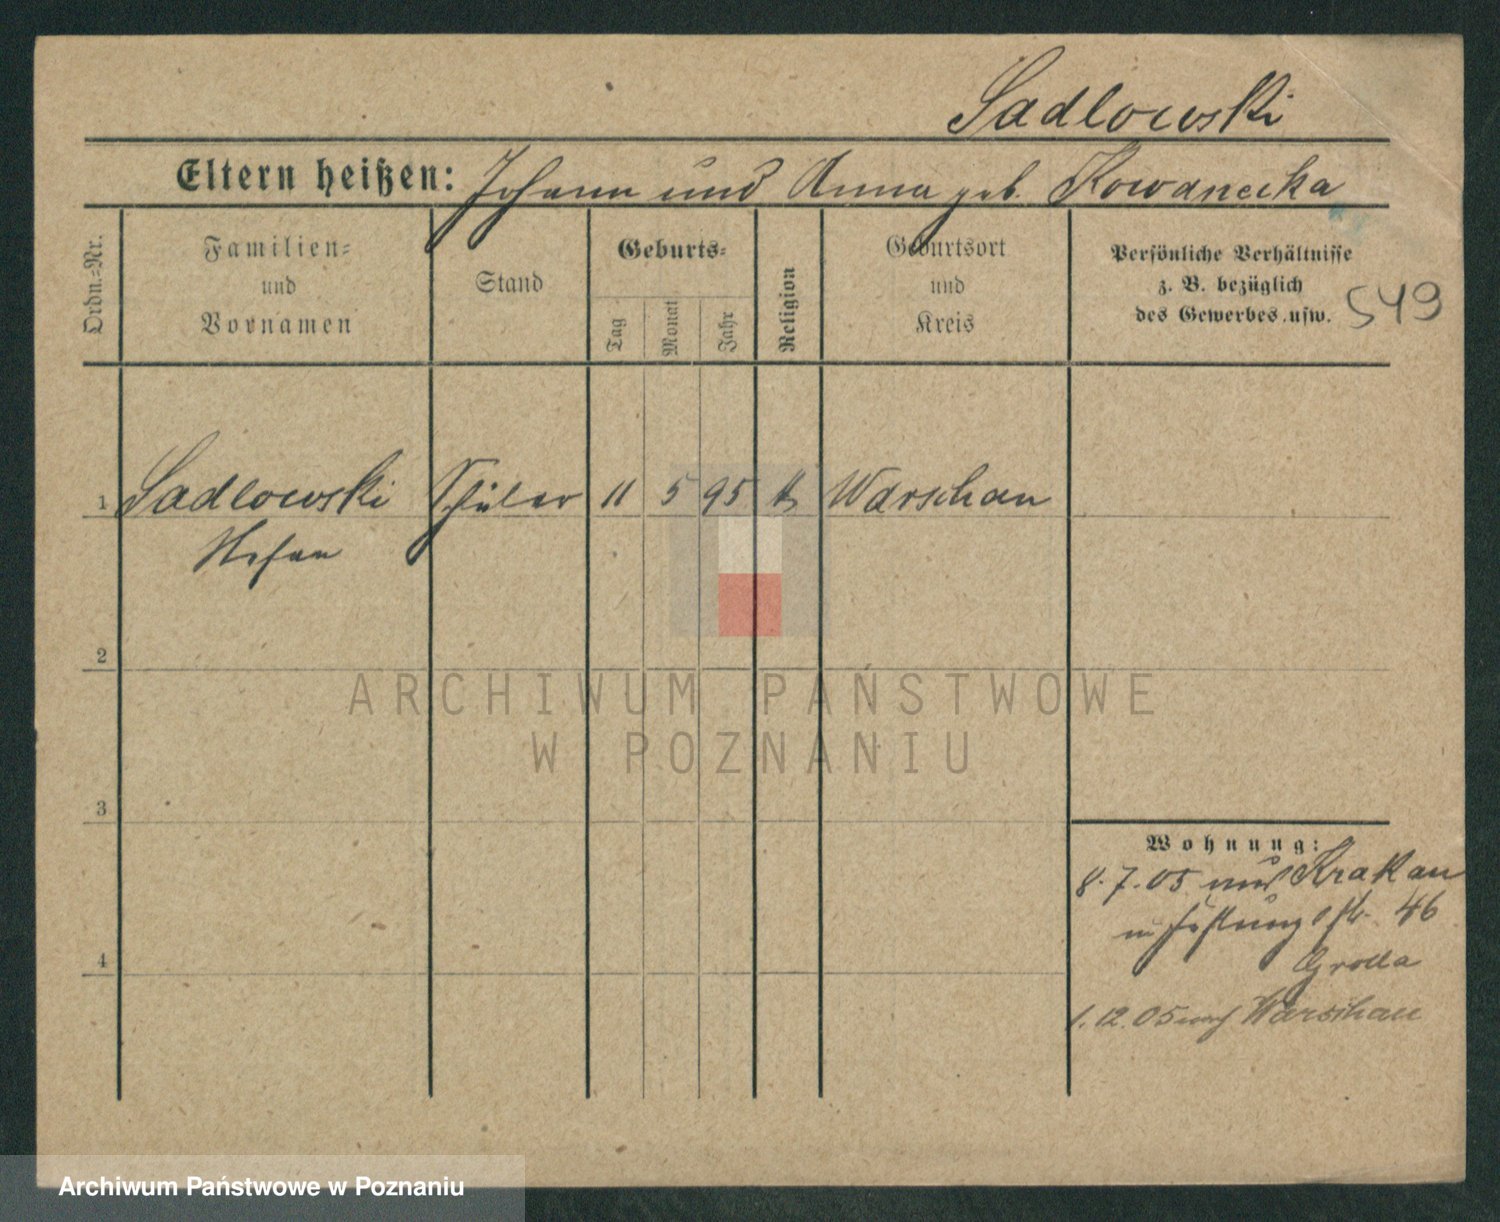 Sadlowski
Eltern heißen: Johann und Anna geb. Kowanecka
Ordn.=Nr.
Familien=
und
Vornamen
Stand
Geburts=
Tag
Monat
Jahr
Religion
Geburtsort
und
Kreis
Persönliche Verhältnisse
z. B. bezüglich
des Gewerbes usw.
549
1 Sadlowski Schüler 11 5 95 k Warschau
Stefan
2
ARCHIWUM PAŃSTWOWE
W POZNANIU
3
Wohnung:
8.7.05 aus Krakau
n Festungsstr. 46
4
1.12.05 nach Warschau
Archiwum Państwowe w Poznaniu